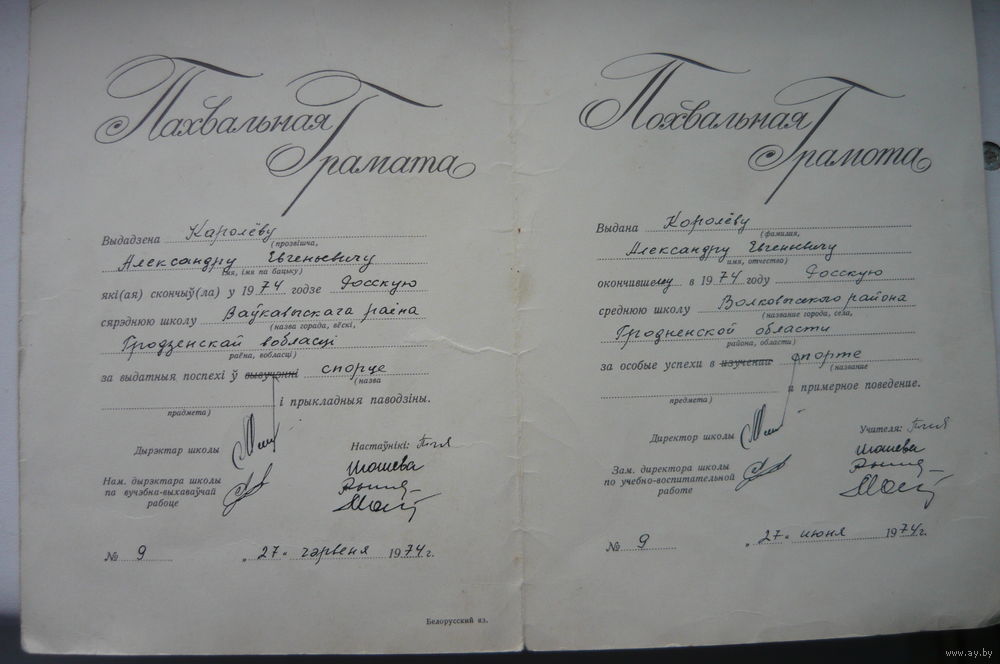 Пахвальная
Грамата
Выдадзена Каролёву
(прозвішча,
Александру Евгеньевичу
імя, імя па бацьку)
які(ая) скончыў(ла) у 1974 годзе Госскую
сярэднюю школу Ваўкавыскага раёна
(назва горада, вёскі,
Гродзенскай вобласці
раёна, вобласці)
за выдатныя поспехі ў вывучэнні спорце
(назва
прадмета) і прыкладныя паводзіны.
Дырэктар школы
Настаўнікі:
Шашева
Нам. дырэктара школы
па вучэбна-выхаваўчай
рабоце
№ 9 „27“ чэрвеня 1974 г.
Белорусский яз.
Похвальная
Грамота
Выдана Королёву
(фамилия,
Александру Евгеньевичу
имя, отчество)
окончившему в 1974 году Госскую
среднюю школу Волковысского района
(название города, села,
Гродненской области
района, области)
за особые успехи в изучении спорте
(название
предмета) и примерное поведение.
Директор школы
Учителя:
Шашева
Зам. директора школы
по учебно-воспитательной
работе
№ 9 „27“ июня 1974 г.
www.ay.by